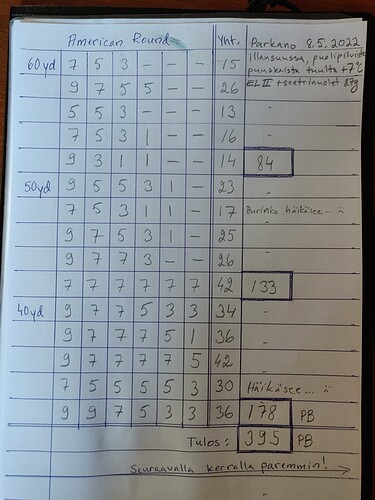 American Round Yht. Parkano 8.5.2022
60yd 7 5 3 - - - 15 illansuussa, puolipilvistä
puuskaista tuulta +7°C
9 7 5 5 - - 26 EL II + seetrinuolet
5 5 3 - - - 13 -
7 5 3 1 - - 16 -
9 3 1 1 - - 14 84
50yd 9 5 5 3 1 - 23 -
7 5 3 1 1 - 17 Aurinko häikäsee... :(
9 7 5 3 1 - 25 -
9 7 7 3 - - 26 -
7 7 7 7 7 7 42 133
40yd 9 7 7 5 3 3 34 -
9 7 7 7 5 1 36 -
9 7 7 7 7 5 42 -
7 5 5 5 5 3 30 Häikäsee... :(
9 9 7 5 3 3 36 178 PB
Tulos: 395 PB
Seuraavalla kerralla paremmin!